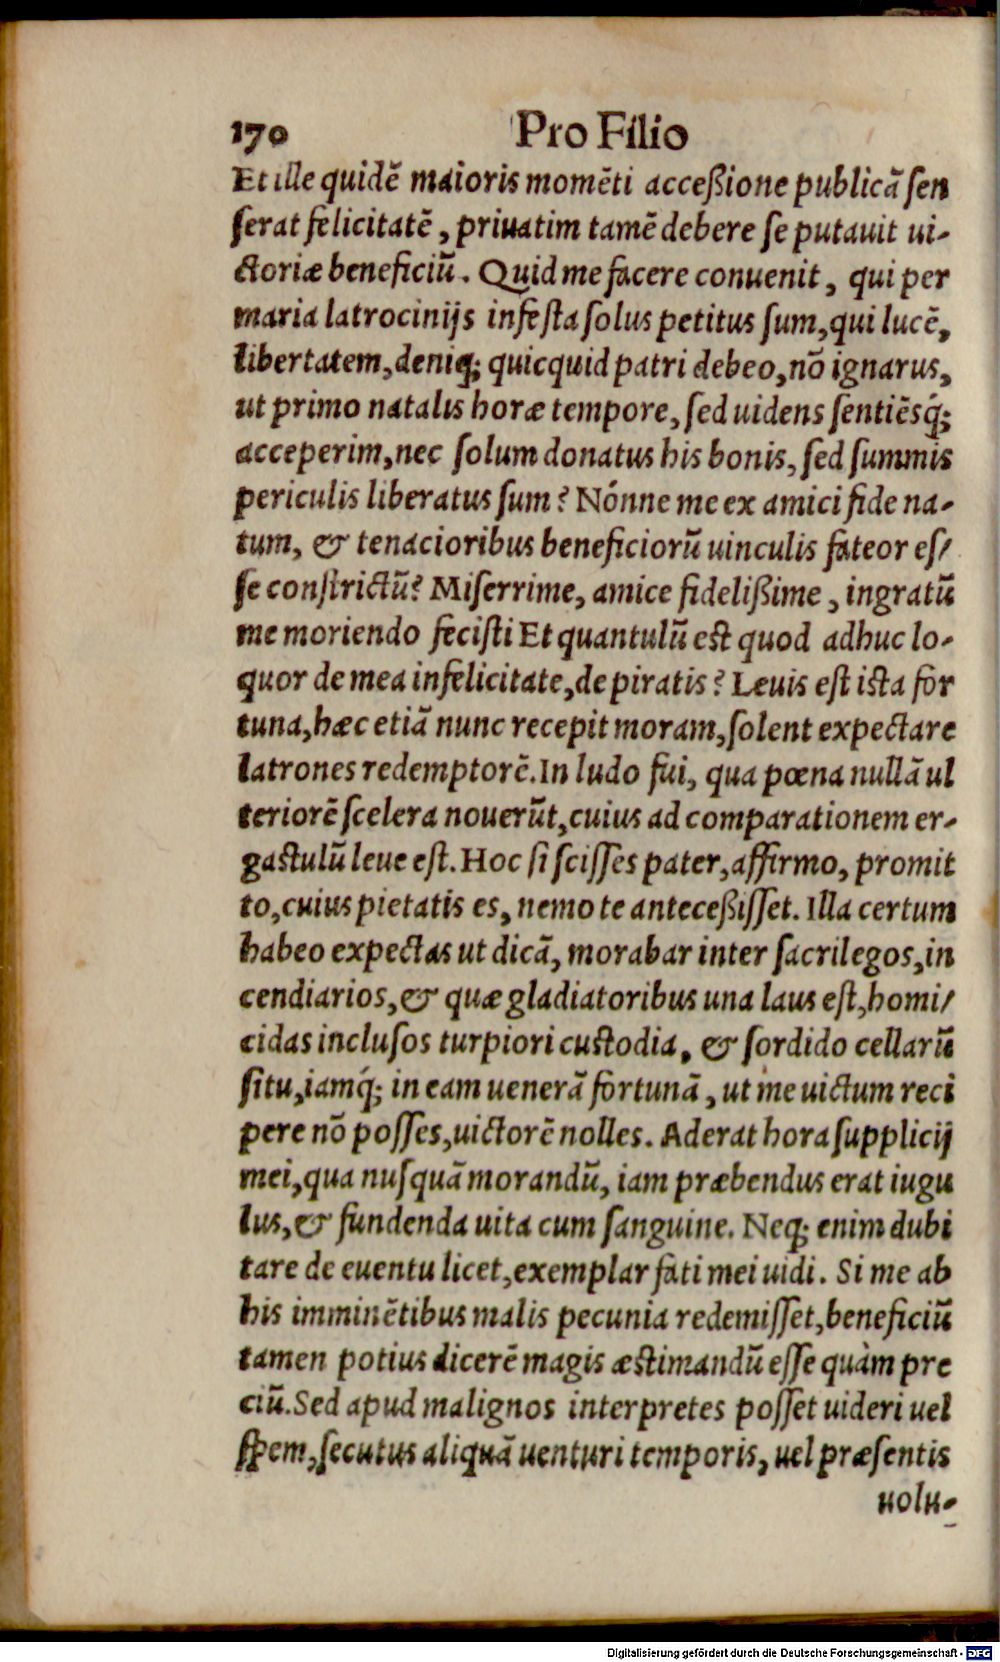 170 Pro Filio
Et ille quidẽ maioris momẽti acceßione publicã ſen
ſerat felicitatẽ, priuatim tamẽ debere ſe putauit ui-
ctoriæ beneficiũ. Quid me facere conuenit, qui per
maria latrocinijs infeſta ſolus petitus ſum, qui lucẽ,
libertatem, deniq; quicquid patri debeo, nõ ignarus,
ut primo natalis horæ tempore, ſed uidens ſentiẽsq́;
acceperim, nec ſolum donatus his bonis, ſed ſummis
periculis liberatus ſum? Nónne me ex amici fide na-
tum, & tenacioribus beneficiorũ uinculis fateor eſ/
ſe conſtrictũ? Miſerrime, amice fidelißime, ingratũ
me moriendo feciſti Et quantulũ eſt quod adhuc lo-
quor de mea infelicitate, de piratis? Leuis eſt iſta for
tuna, hæc etiã nunc recepit moram, ſolent expectare
latrones redemptorẽ. In ludo fui, qua pœna nullã ul
teriorẽ ſcelera nouerũt, cuius ad comparationem er-
gaſtulũ leue eſt. Hoc ſi ſciſſes pater, affirmo, promit
to, cuius pietatis es, nemo te anteceßiſſet. Illa certum
habeo expectas ut dicã, morabar inter ſacrilegos, in
cendiarios, & quæ gladiatoribus una laus eſt, homi/
cidas incluſos turpiori cuſtodia, & ſordido cellarũ
ſitu, iamq́; in eam uenerã fortunã, ut me uictum reci
pere nõ poſſes, uictorẽ nolles. Aderat hora ſupplicij
mei, qua nuſquã morandũ, iam præbendus erat iugu
lus, & fundenda uita cum ſanguine. Neq; enim dubi
tare de euentu licet, exemplar fati mei uidi. Si me ab
his imminẽtibus malis pecunia redemiſſet, beneficiũ
tamen potius dicerẽ magis æſtimandũ eſſe quàm pre
ciũ. Sed apud malignos interpretes poſſet uideri uel
ſpem, ſecutus aliquã uenturi temporis, uel præſentis
uolu-
Digitalisierung gefördert durch die Deutsche Forschungsgemeinschaft - DFG